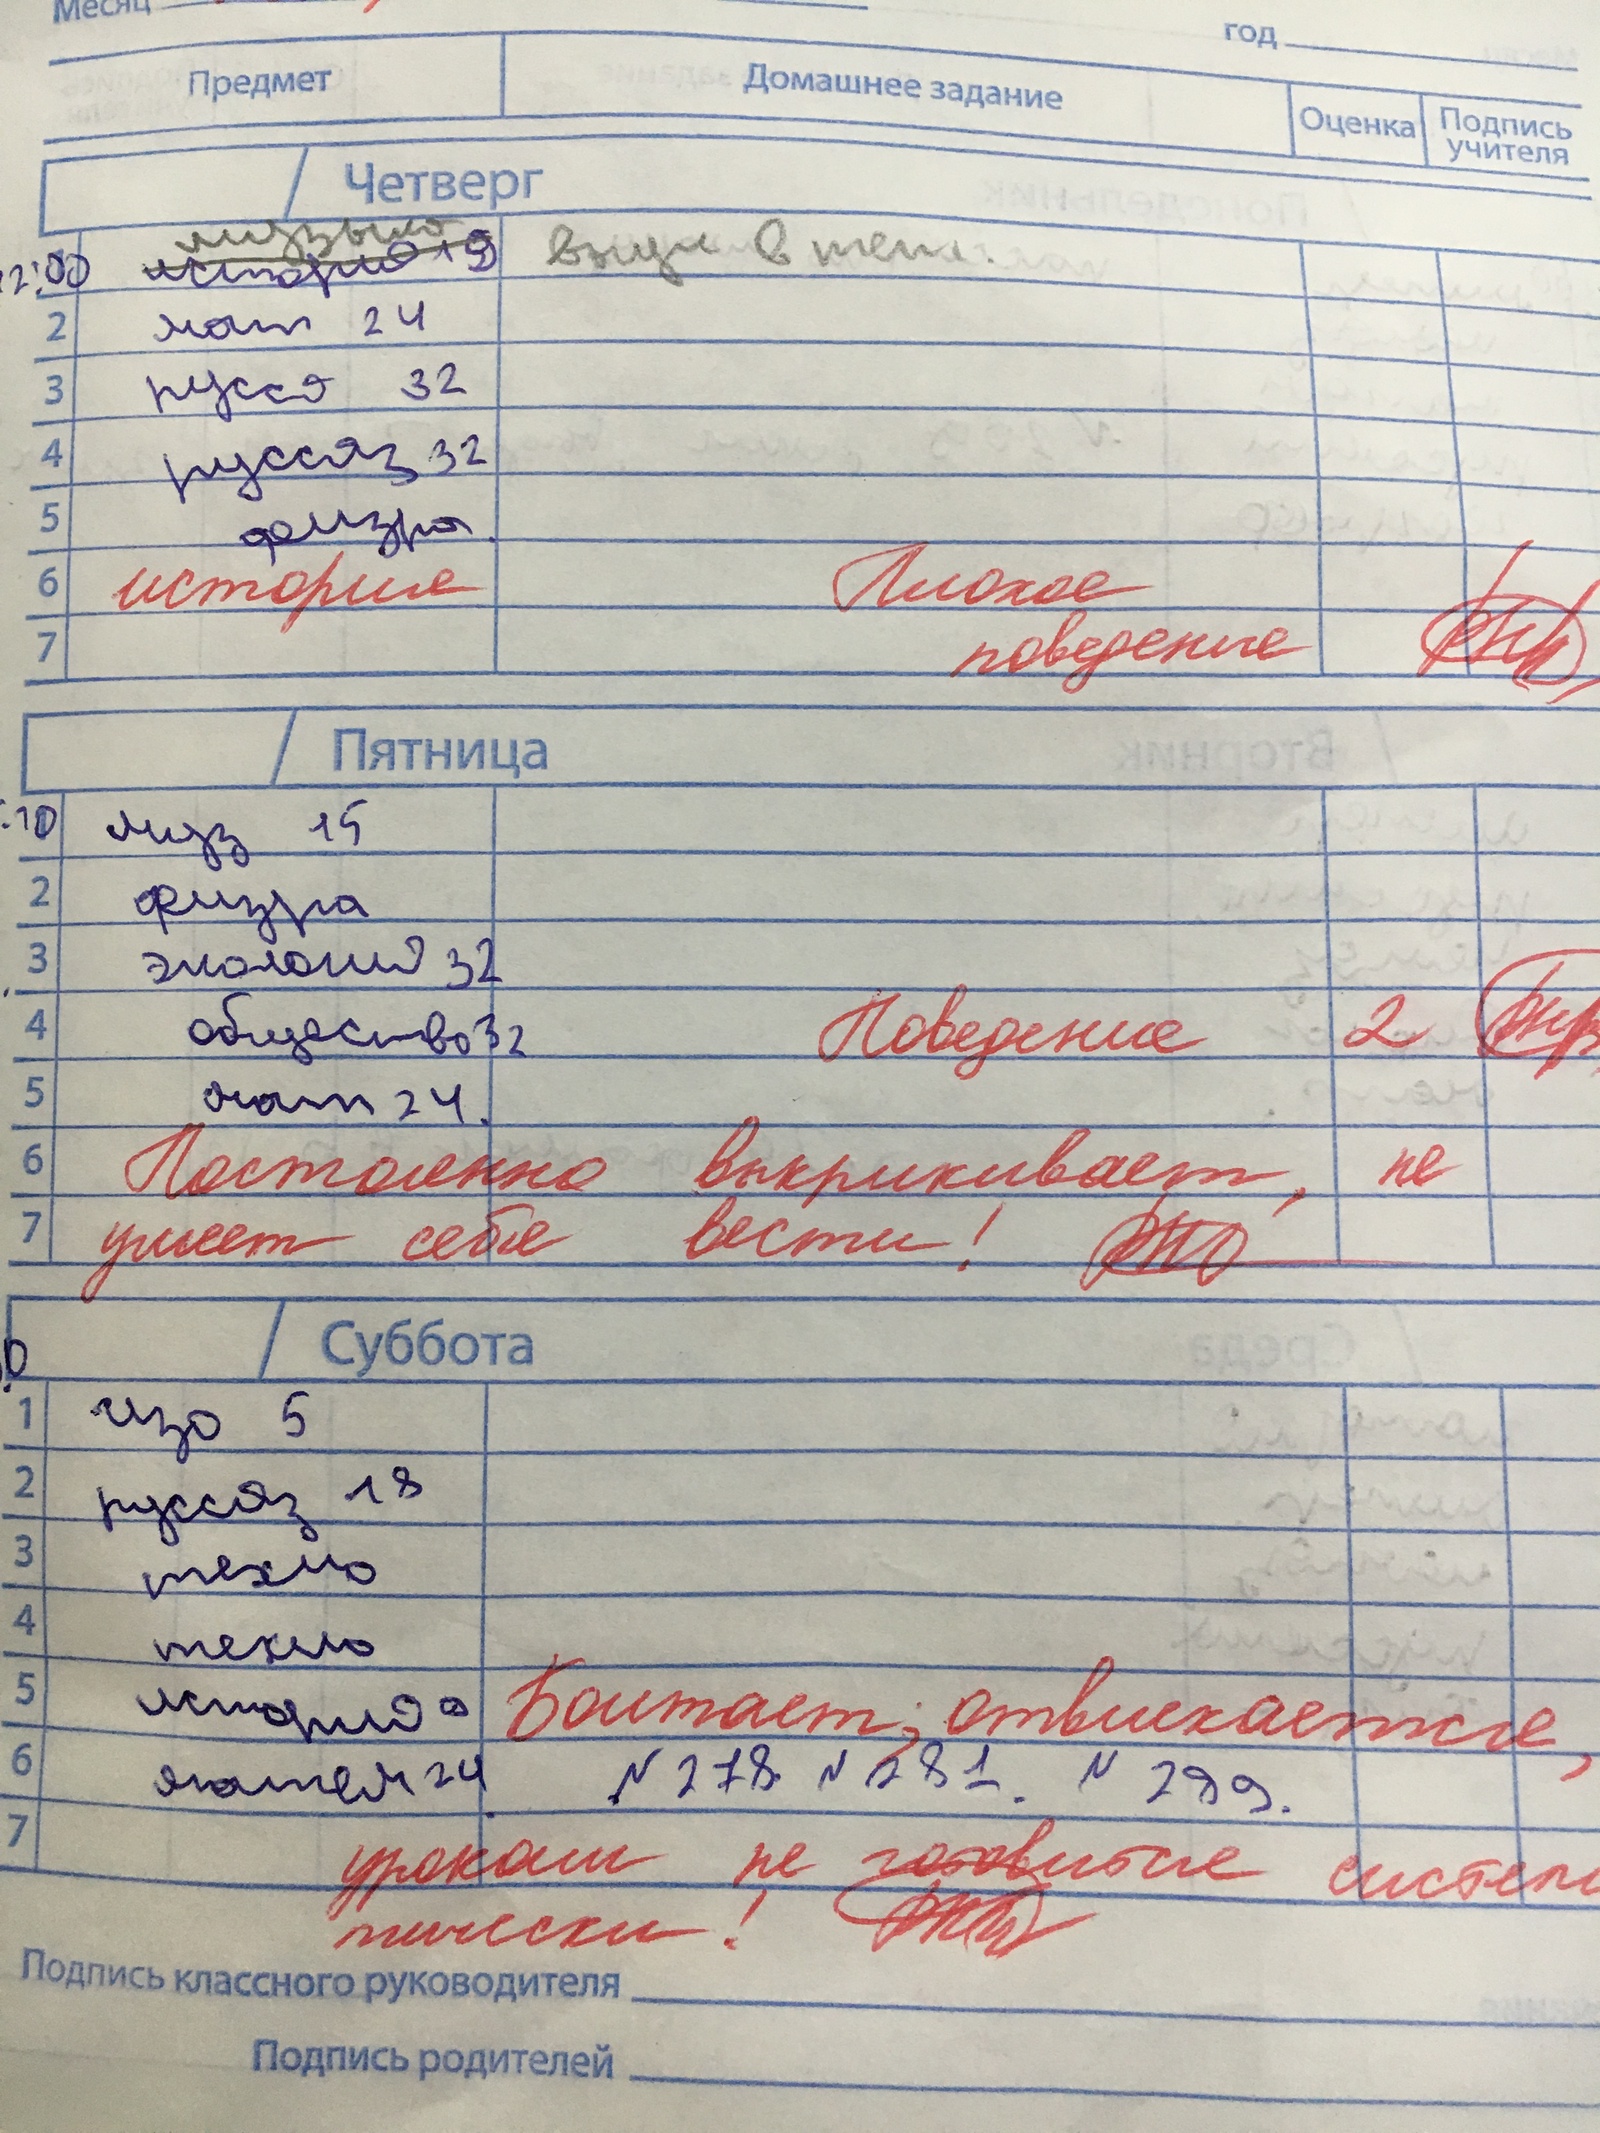 Месяц
год
Предмет Домашнее задание Оценка Подпись учителя
Четверг
музыка
12:00 история 19 выуч в тет.
2 мат 24
3 русся 32
4 руссяз 32
5 физра.
6 история Плохое
7 поведение
Пятница
:10 муз 15
2 физра
3 экология 32
4 общество 32 Поведение 2
5 мат 24.
6 Постоянно выкрикивает, не
7 умеет себя вести!
Суббота
1 изо 5
2 руссяз 18
3 техно
4 техно
5 история Болтает, отвлекается,
6 матем 24 N 278. N 281. N 299.
7 урокам не готовится система
тически!
Подпись классного руководителя
Подпись родителей